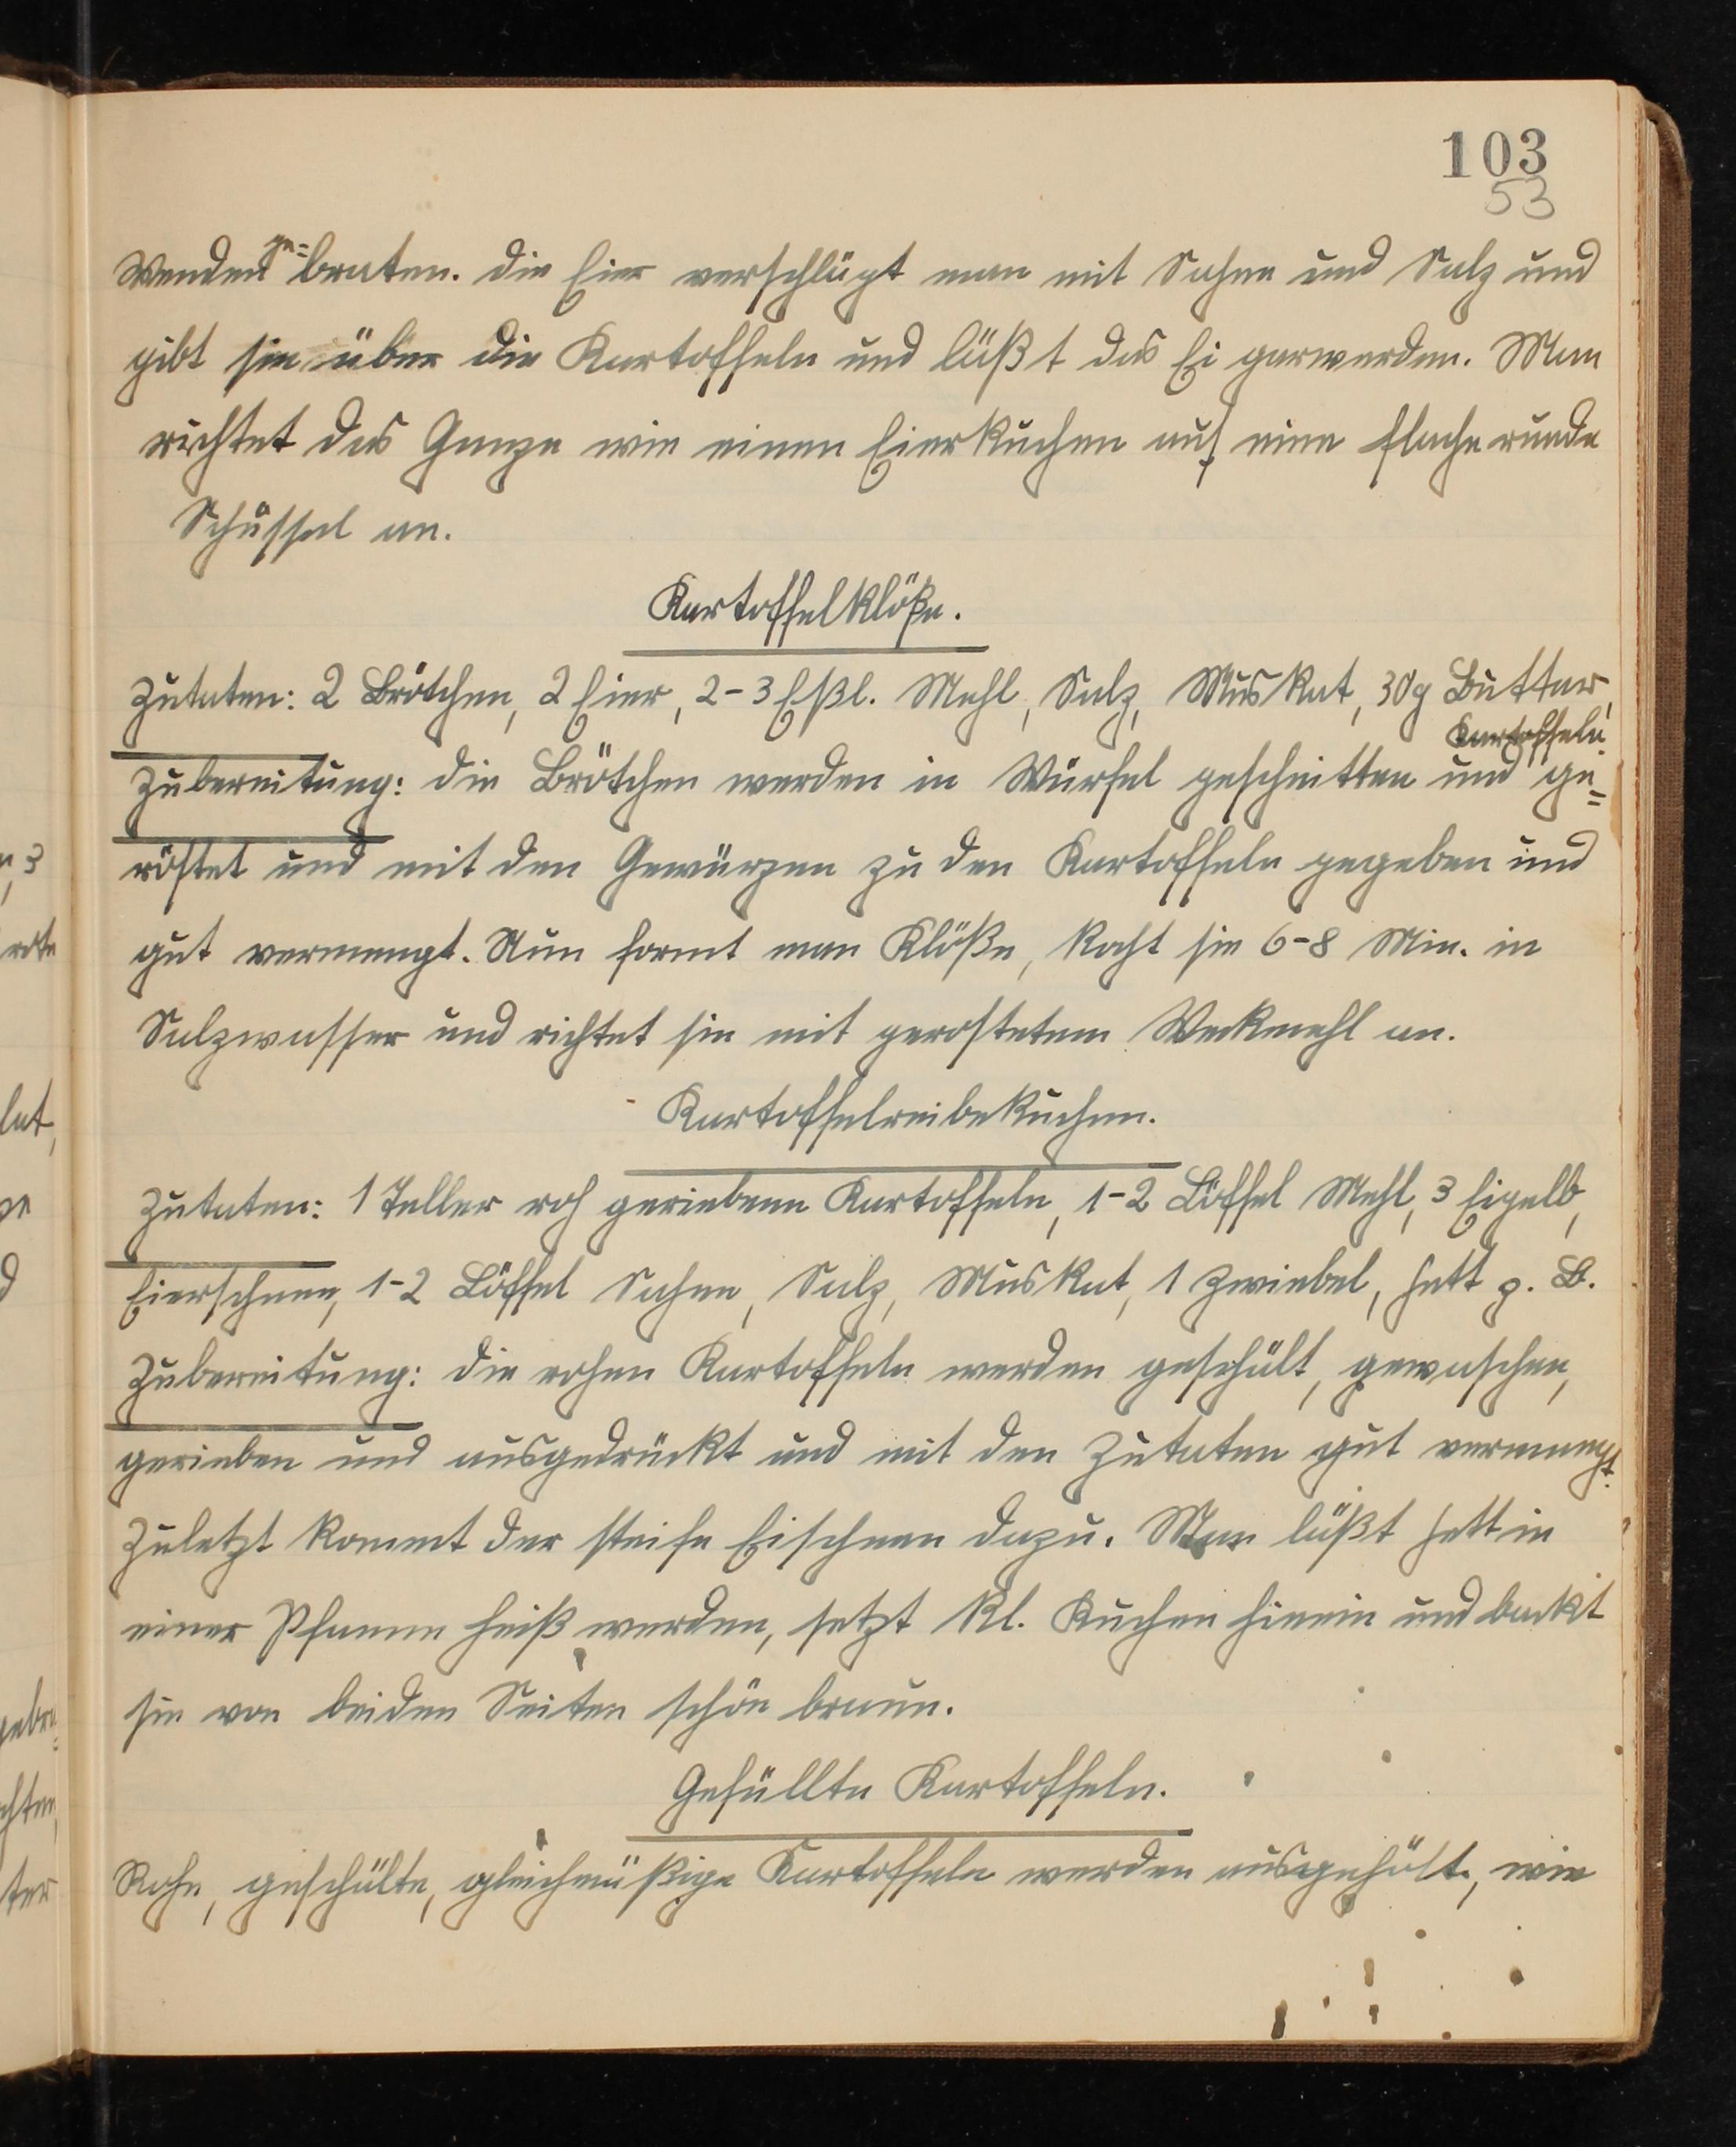 103
53
Wenden ge=braten. Die Eier verschlägt man mit Sahne und Salz und
gibt sie über die Kartoffeln und läßt das Ei garwerden. Man
richtet das Ganze wie einen Eierkuchen auf eine flache runde
Schüssel an.
Kartoffelklöße.
Zutaten: 2 Brötchen, 2 Eier, 2-3 Eßl. Mehl, Salz, Muskat, 30g Butter,
Kartoffeln.
Zubereitung: Die Brötchen werden in Würfel geschnitten und ge=
röstet und mit den Gewürzen zu den Kartoffeln gegeben und
gut vermengt. Nun formt man Klöße, kocht sie 6-8 Min. in
Salzwasser und richtet sie mit gerostetem Weckmehl an.
Kartoffelreibekuchen.
Zutaten: 1 Teller roh geriebene Kartoffeln, 1-2 Löffel Mehl, 3 Eigelb,
Eierschnee, 1-2 Löffel Sahne, Salz, Muskat, 1 Zwiebel, Fett z. B.
Zubereitung: Die rohen Kartoffeln werden geschält, gewaschen,
gerieben und ausgedrückt und mit den Zutaten gut vermengt.
Zuletzt kommt der steife Eischnee dazu. Man läßt Fett in
einer Pfanne heiß werden, setzt kl. Kuchen hinein und backt
sie von beiden Seiten schön braun.
Gefüllte Kartoffeln.
Rohe, geschälte, gleichmäßige Kartoffeln werden ausgehölt, wie